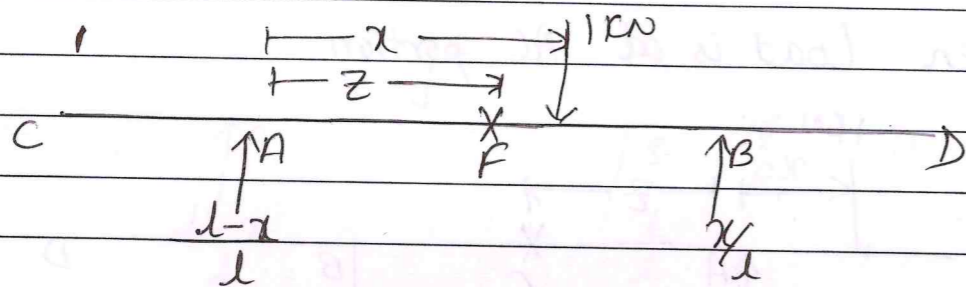 x
1 KN
z
C
A
F
B
D
l-x
l
x/l